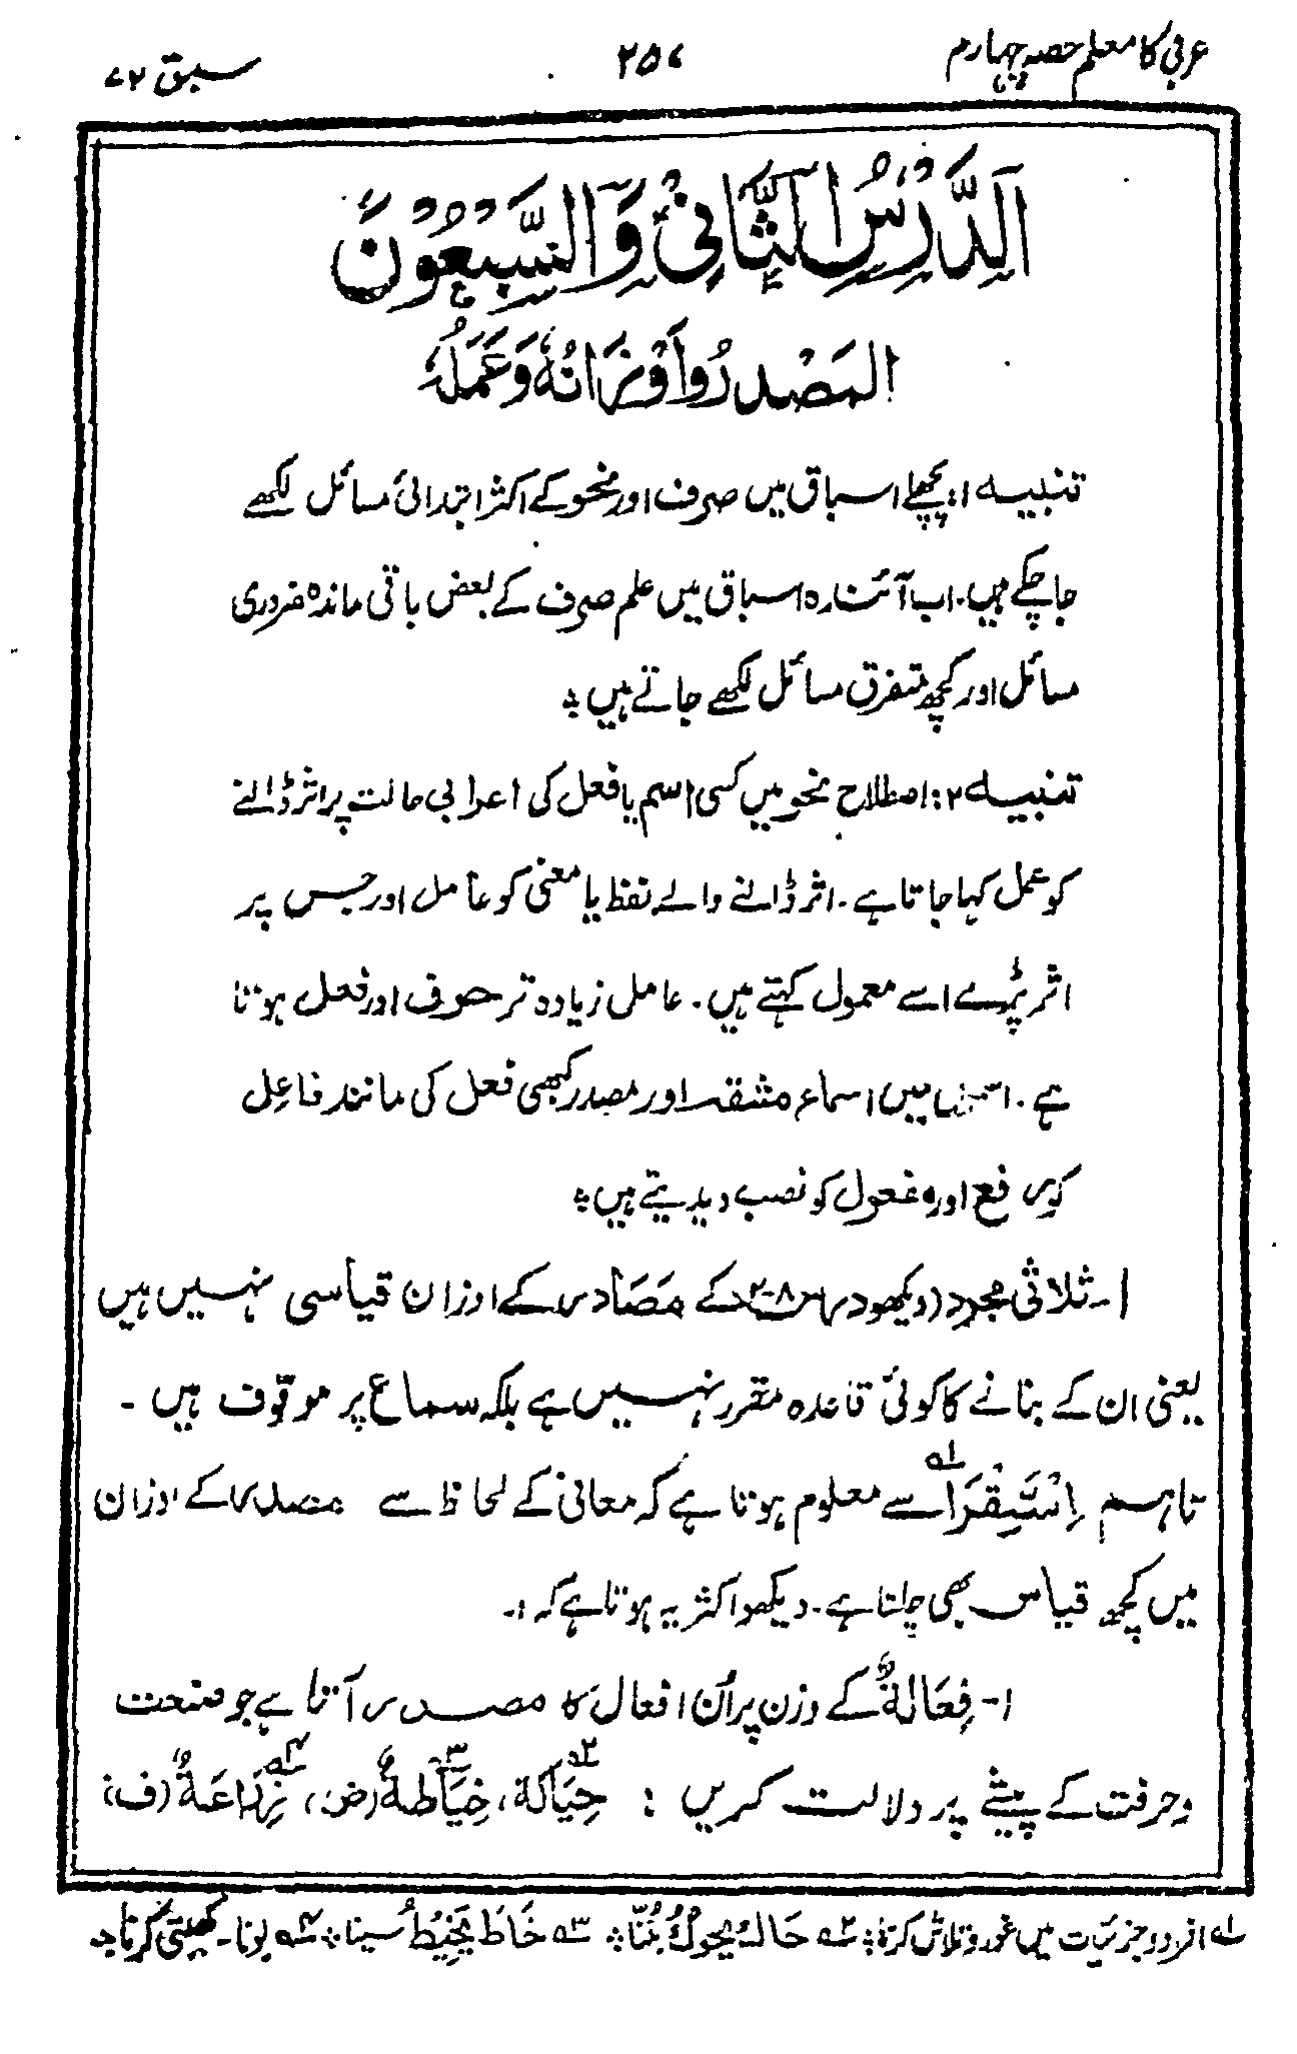 عربی کا معلم حصہ چہارم ۲۵۷ سبق ۷۲
اَلدَّرْسُ الثَّانِیْ وَالسَّبْعُوْنَ
المَصْدرُ وأوْزَانُهٗ وَعَمَلُهٗ
تنبیہ ۱: پچھلے اسباق میں صرف اور نحو کے اکثر ابتدائی مسائل لکھے
جا چکے ہیں. اب آئندہ اسباق میں علم صرف کے بعض باقی ماندہ ضروری
مسائل اور کچھ متفرق مسائل لکھے جاتے ہیں ؞
تنبیہ ۲: اصطلاح نحو میں کسی اسم یا فعل کی اعرابی حالت پر اثر ڈالنے
کو عمل کہا جاتا ہے۔ اثر ڈالنے والے لفظ یا معنی کو عامل اور جس پر
اثر پڑے اسے معمول کہتے ہیں۔ عامل زیادہ تر حروف اور فعل ہوتا
ہے۔ اسماء میں اسماء مشتقہ اور مصدر کبھی فعل کی مانند فاعِل
کو رفع اور مفعول کو نصب دیدیتے ہیں ؞
۱۔ ثلاثی مجرد (دیکھو درس ۸-۲) کے مَصَادر کے اوزان قیاسی نہیں ہیں
یعنی ان کے بنانے کا کوئی قاعدہ مقرر نہیں ہے بلکہ سماع پر موقوف ہیں ۔
تاہم اِسْتِقْرَا ۱؎ سے معلوم ہوتا ہے کہ معانی کے لحاظ سے مصدر کے اوزان
میں کچھ قیاس بھی چلتا ہے۔ دیکھو اکثر یہ ہوتا ہے کہ :۔
۱- فِعَالةٌ کے وزن پر اُن افعال کا مصدر آتا ہے جو صنعت
وحرفت کے پیشے پر دلالت کریں : حِیَاکَة ۲؎، خِیَاطةٌ ۳؎ (ض)، زِرَاعَةٌ ۴؎ (ف)
۱؎ افراد و جزئیات میں غور و تلاش کرنا ؞ ۲؎ حَاكَ يَحُوْكُ بُننا ؞ ۳؎ خَاطَ يَخِيْطُ سینا ؞ ۴؎ بونا۔ کھیتی کرنا ؞